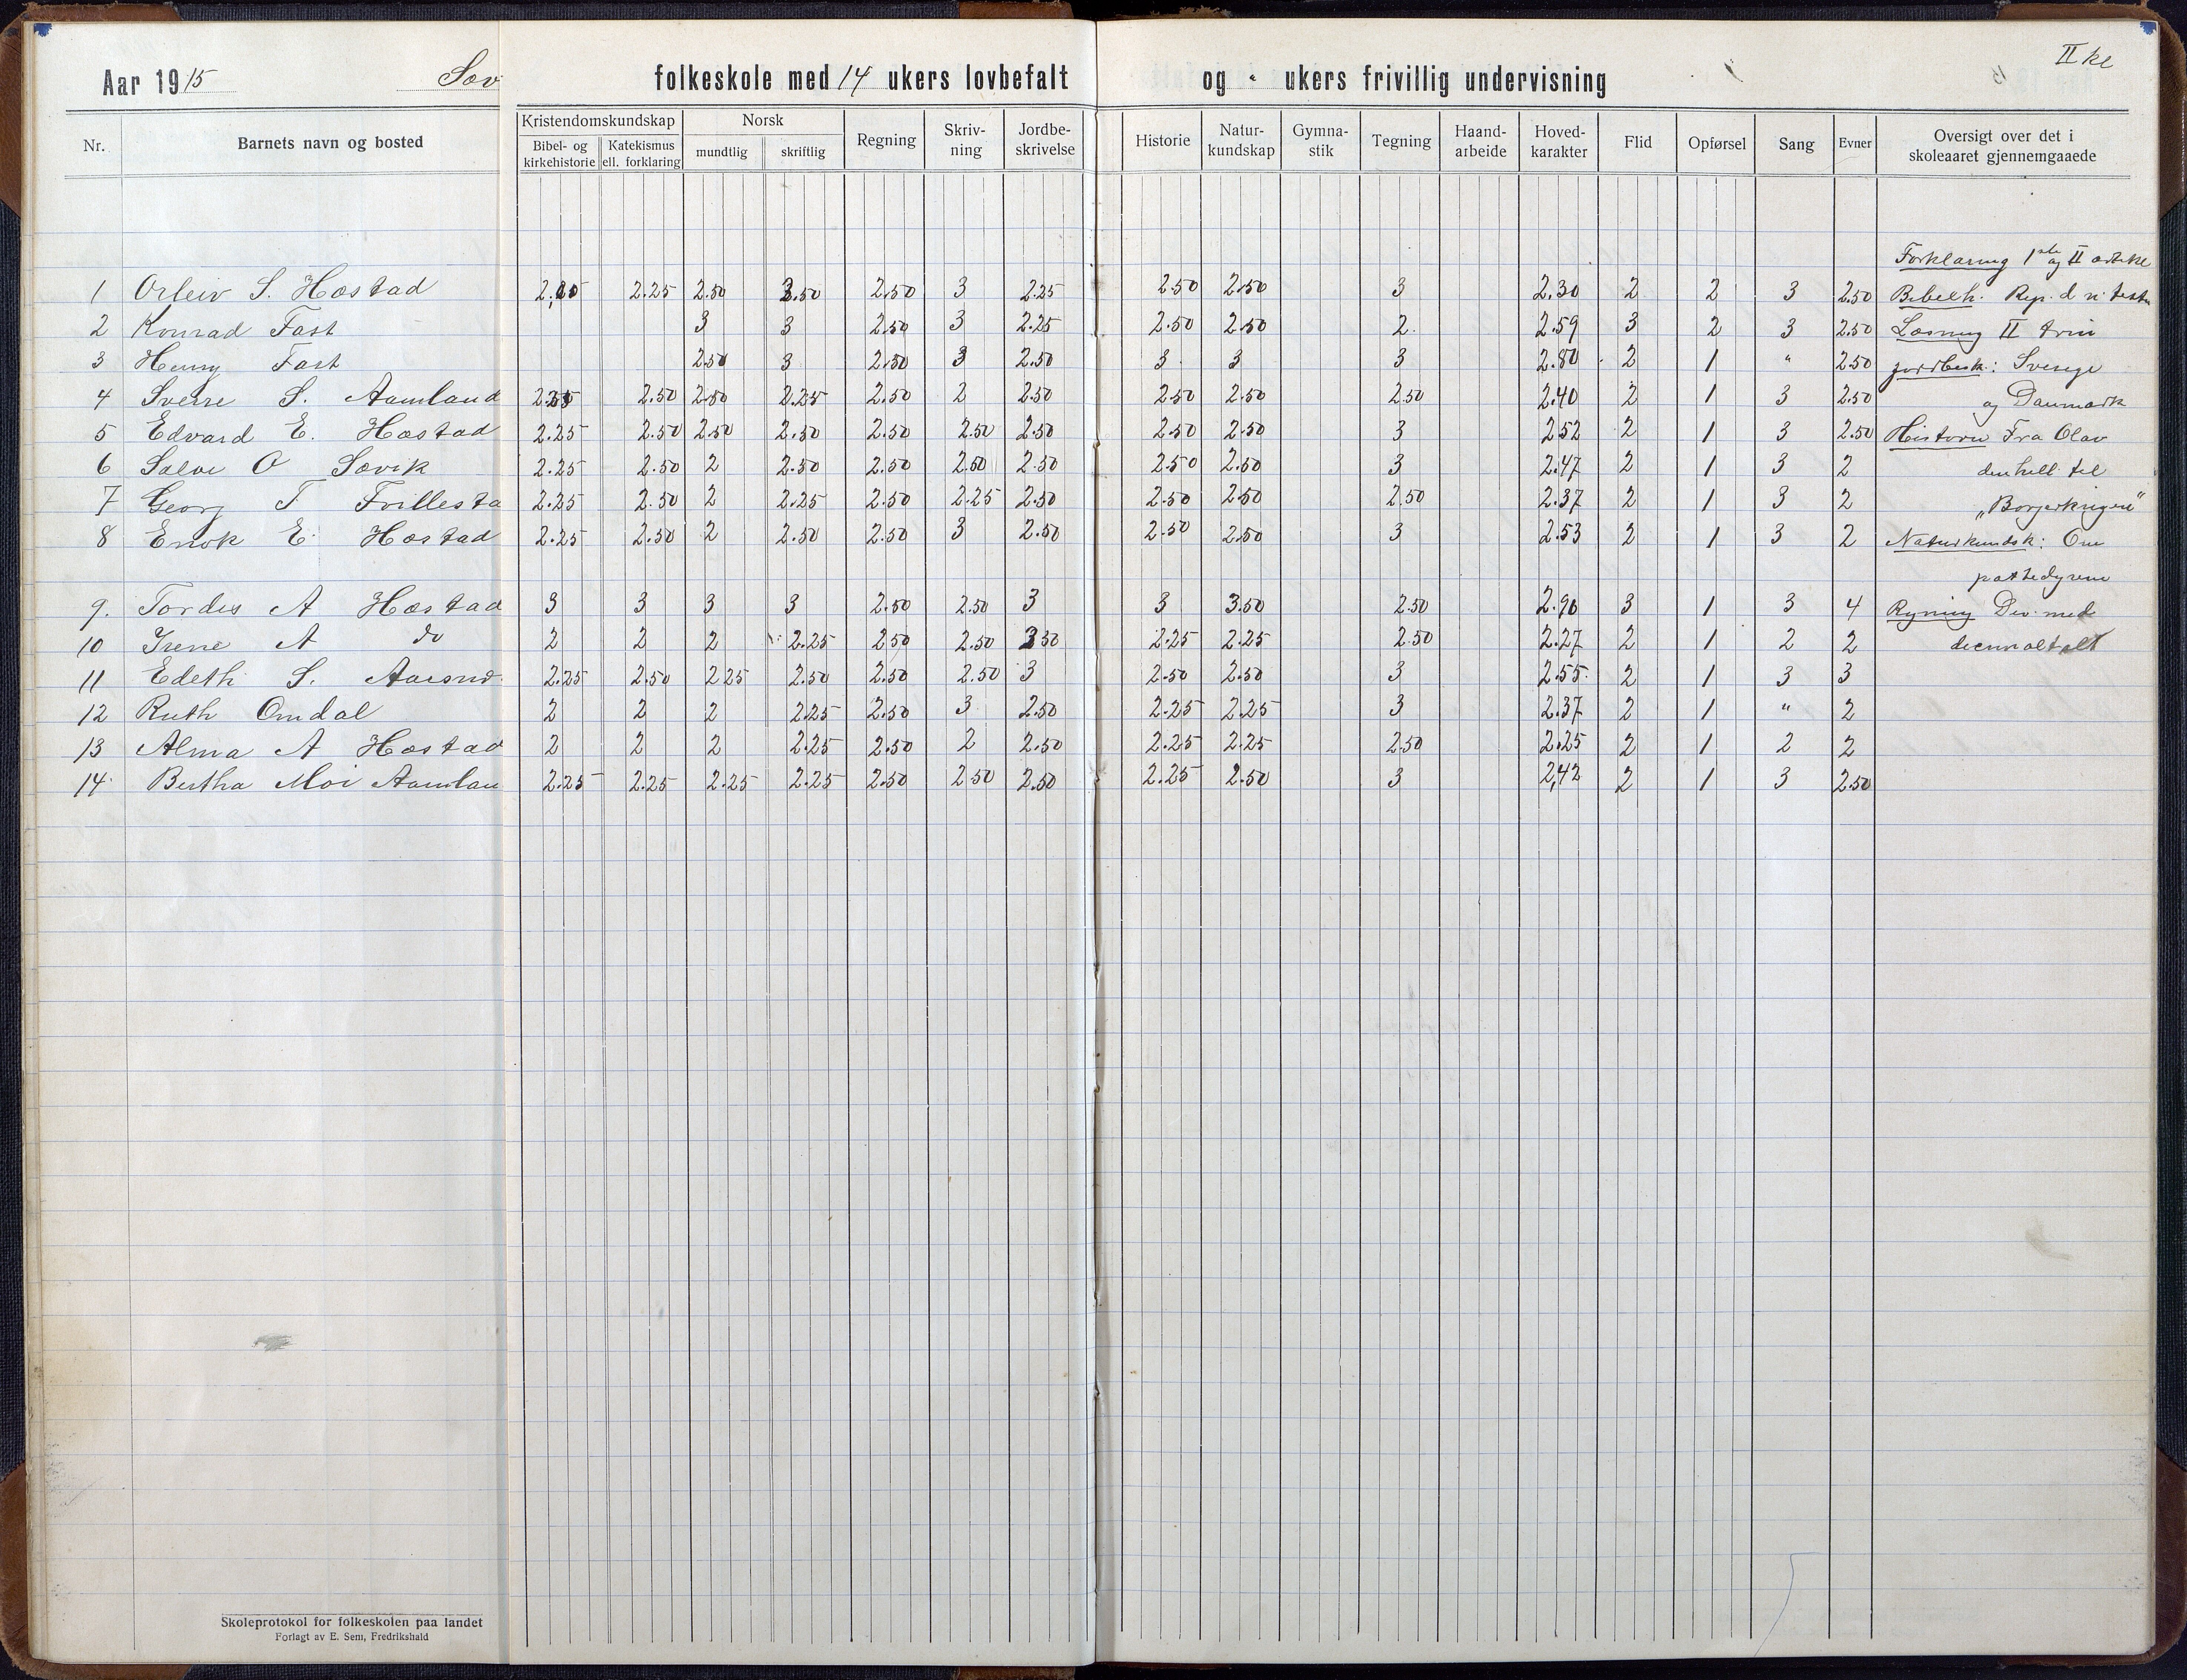 II kl
Aar 1915 Sæv folkeskole med 14 ukers lovbefalt og " ukers frivillig undervisning
Nr. Barnets navn og bosted Kristendomskundskap Bibel- og kirkehistorie Katekismus ell. forklaring Norsk mundtlig skriftlig Regning Skriv-ning Jordbe-skrivelse Historie Natur-kundskap Gymna-stik Tegning Haand-arbeide Hoved-karakter Flid Opførsel Sang Evner Oversigt over det i skoleaaret gjennemgaaede
Forklaring 1ste og II artikel
1 Orleiv S. Hæstad 2.25 2.50 2.50 2.50 3 2.25 2.50 2.50 3 2.30 2 2 3 2.50 Bibelh. Rep. d n. testm
2 Konrad Fast 3 3 2.50 3 2.25 2.50 2.50 2. 2.59 3 2 3 2.50 Læsning II trin
3 Henry Fast 2.50 3 2.50 3 2.50 3 3 3 2.80 2 1 " 2.50 jordbesk.: Sverige
4 Sverre S. Aamland 2.50 2.50 2.25 2.50 2 2.50 2.50 2.50 2.50 2.40 2 1 3 2.50 og Danmark
5 Edvard E. Hæstad 2.25 2.50 2.50 2.50 2.50 2.50 2.50 2.50 2.50 3 2.52 2 1 3 2.50 Historie Fra Olav
6 Salve O Sævik 2.25 2.50 2 2.50 2.50 2.50 2.50 2.50 2.50 3 2.47 2 1 3 2 den hell. til
7 Georg T Frillesta 2.25 2.50 2 2.25 2.50 2.25 2.50 2.50 2.50 2.50 2.37 2 1 3 2 „Borgerkrigene"
8 Enok E. Hæstad 2.25 2.50 2 2.50 2.50 3 2.50 2.50 2.50 3 2.53 2 1 3 2 Naturkundsk: Om
pattedyrene
9. Tordis A Hæstad 3 3 3 3 2.50 2.50 3 3 3.50 2.50 2.90 3 1 3 4 Regning Div. med
10 Irene A do 2 2 2 2.25 2.50 2.50 2.25 2.25 2.50 2.27 2 1 2 2 decimaltall
11 Edeth S. 2.25 2.50 2.25 2.50 2.50 2.50 3 2.50 2.50 3 2.55 2 1 3 3
12 Ruth Omdal 2 2 2 2.25 2.50 3 2.50 2.25 2.25 3 2.37 2 1 " 2
13 Alma A Hæstad 2 2 2 2.25 2.50 2 2.50 2.25 2.25 2.50 2.25 2 1 2 2
14 Bertha Moi Aamlan 2.25 2.25 2.25 2.25 2.50 2.50 2.50 2.25 2.50 3 2,42 2 1 3 2.50
Skoleprotokol for folkeskolen paa landet
Forlagt av E. Sem, Fredrikshald